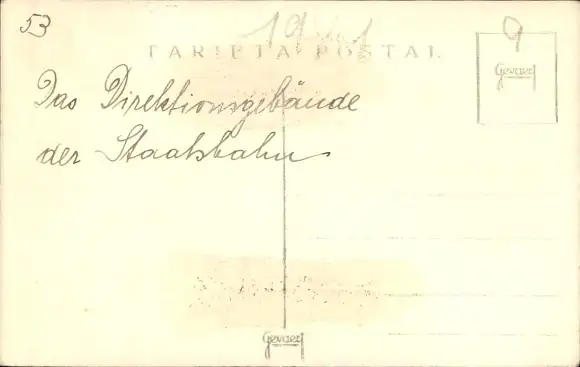 53
9
TARJETA POSTAL
Gevaert
Das Direktionsgebäude
der Staatsbahn
Gevaert